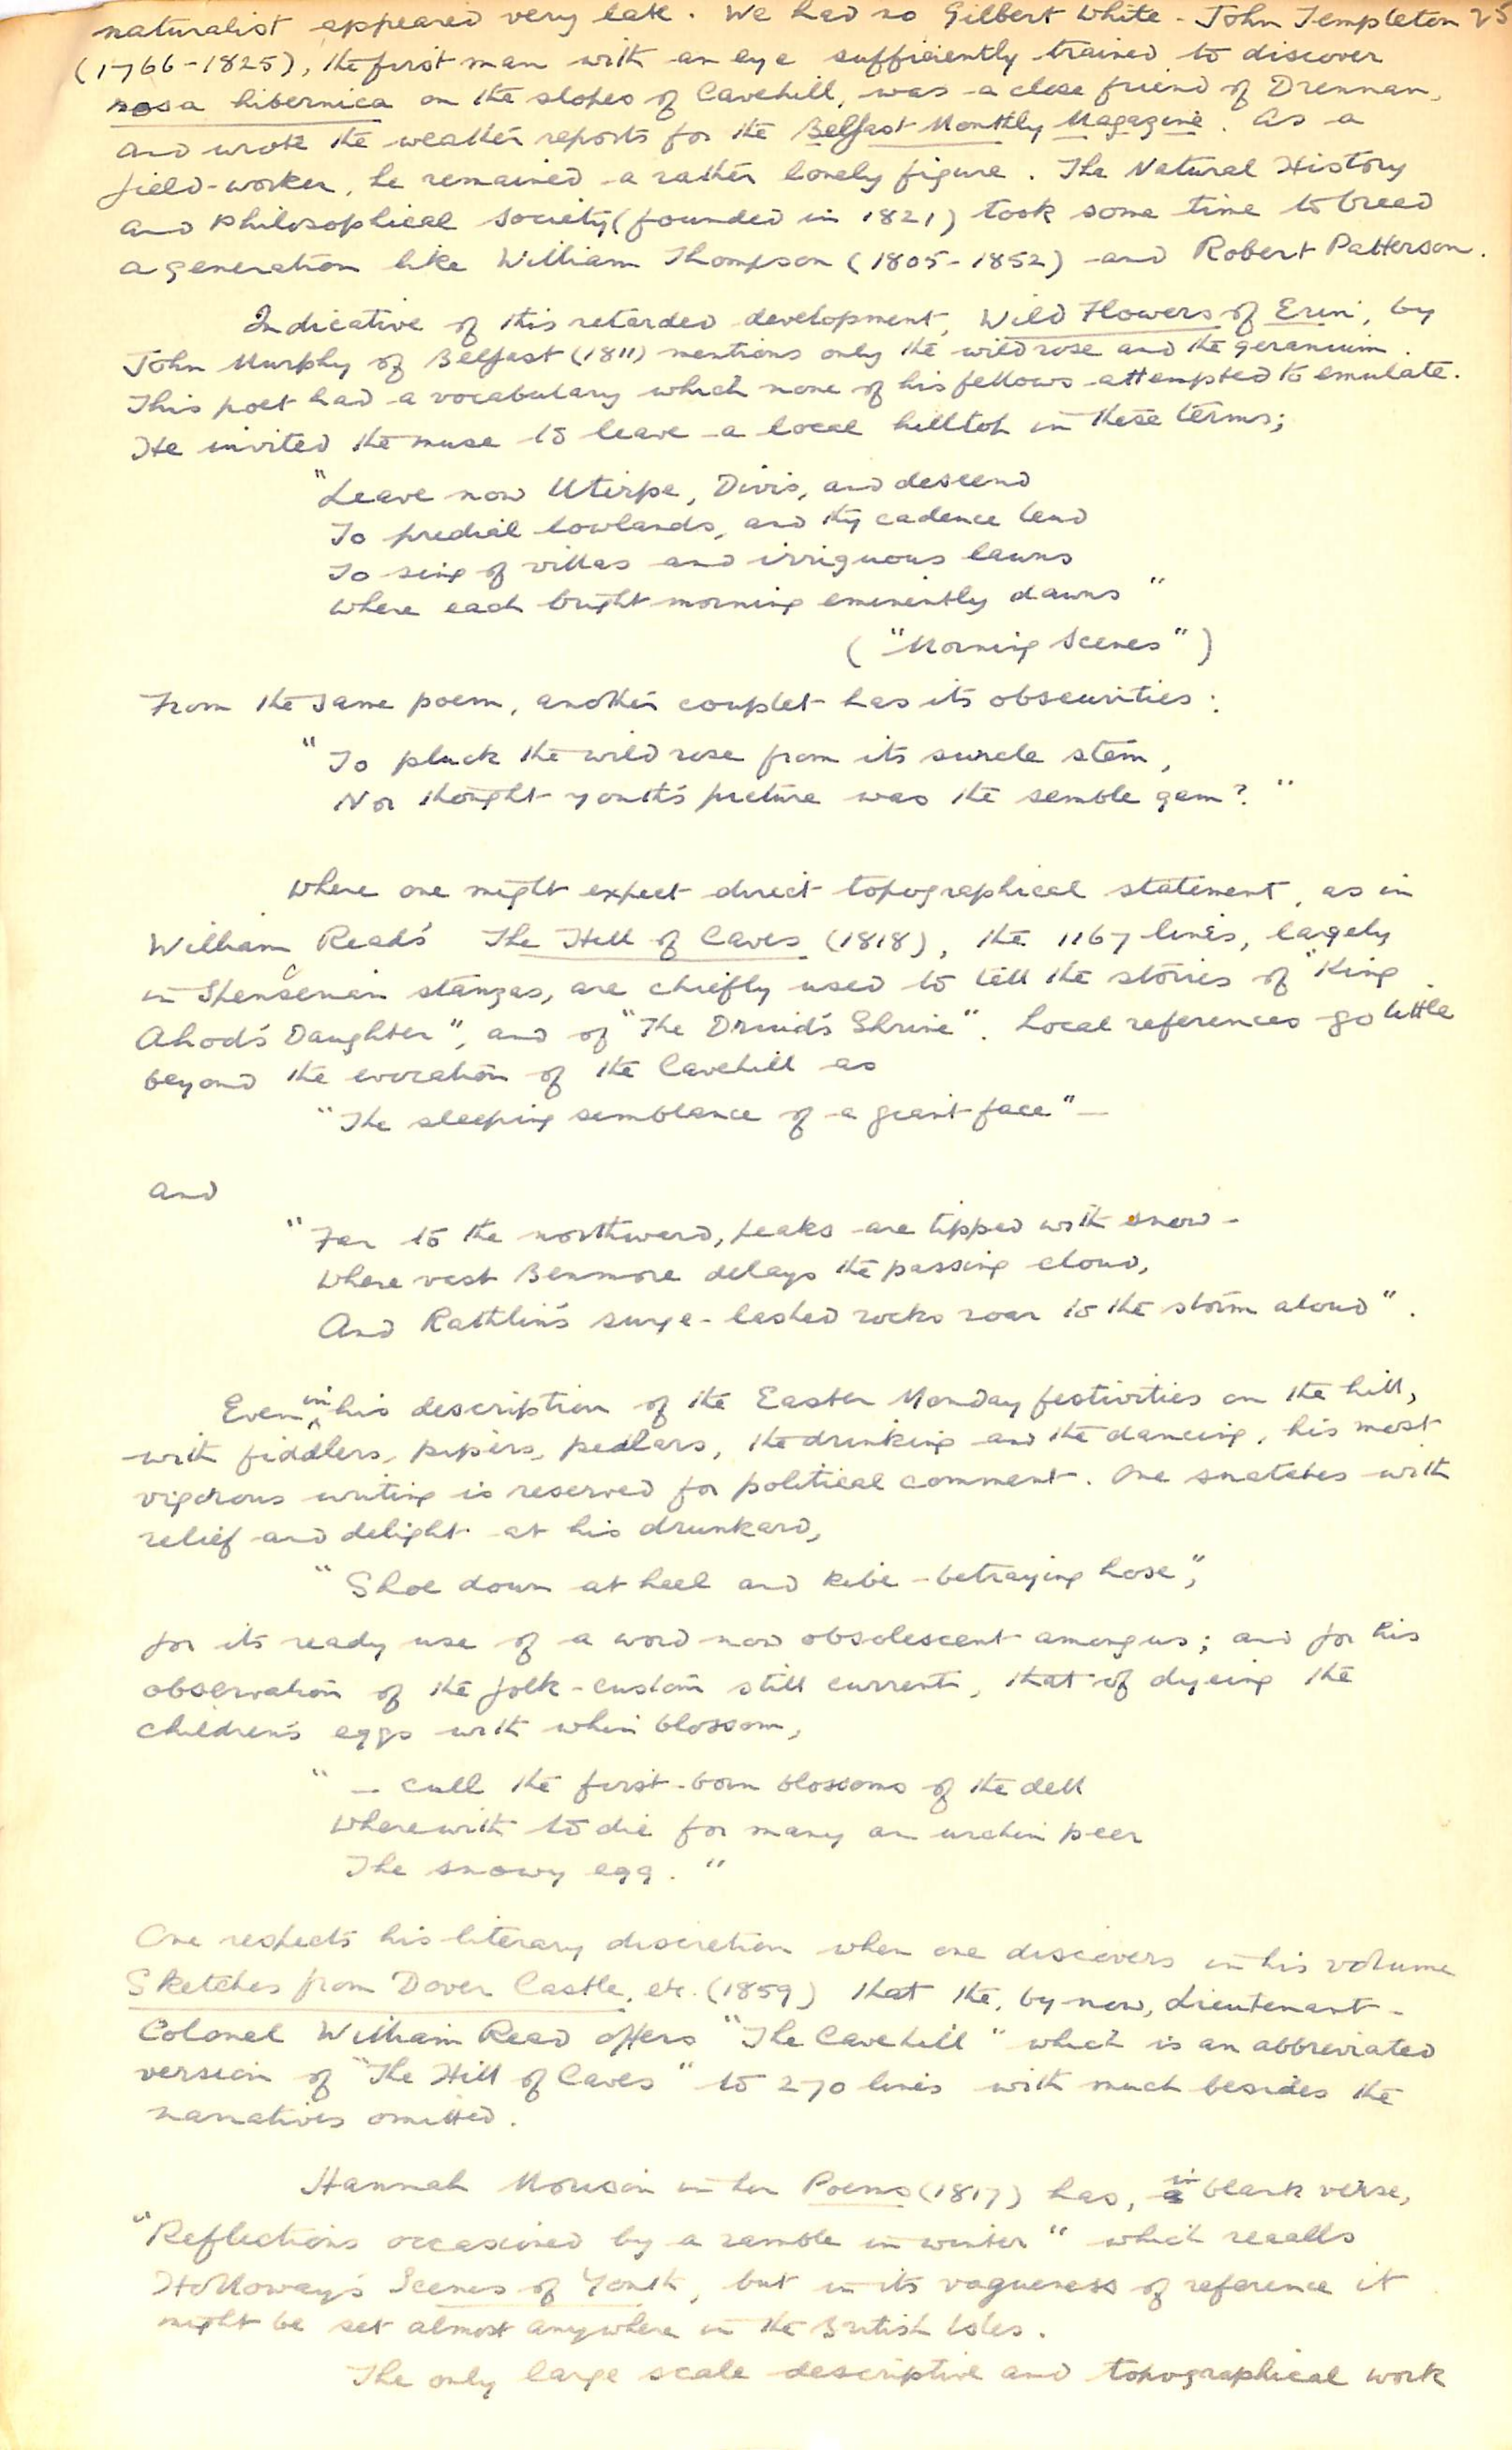 naturalist appeared very late. We had no Gilbert White. John Templeton 25
(1766-1825), the first man with an eye sufficiently trained to discover
rosa hibernica on the slopes of Cavehill, was a close friend of Drennan,
and wrote the weather reports for the Belfast Monthly Magazine. As a
field-worker, he remained a rather lonely figure. The Natural History
and Philosophical Society (founded in 1821) took some time to breed
a generation like William Thompson (1805-1852) and Robert Patterson.
Indicative of this retarded development, Wild Flowers of Erin, by
John Murphy of Belfast (1811) mentions only the wild rose and the geranium.
This poet had a vocabulary which none of his fellows attempted to emulate.
He invited the muse to leave a local hilltop in these terms;
"Leave now Uterpe, Divis, and descend
To predial lowlands, and thy cadence lend
To sing of villas and irriguous lawns
Where each bright morning eminently dawns"
("Morning Scenes")
From the same poem, another couplet has its obscurities:
"To pluck the wild rose from its surcle stem,
Nor thought youth's picture was the semble gem?"
Where one might expect direct topographical statement, as in
William Read's The Hill of Caves (1818), the 1167 lines, largely
in Spenserian stanzas, are chiefly used to tell the stories of "King
Ahod's Daughter", and of "The Druid's Shrine". Local references go little
beyond the evocation of the Cavehill as
"The sleeping semblance of a giant face" -
and
"Far to the northward, peaks are tipped with snow -
Where vast Benmore delays the passing cloud,
And Rathlin's surge-lashed rocks roar to the storm aloud".
Even in his description of the Easter Monday festivities on the hill,
with fiddlers, pipers, pedlars, the drinking and the dancing, his most
vigorous writing is reserved for political comment. One snatches with
relief and delight at his drunkard,
"Shoe down at heel and kibe-betraying hose",
for its ready use of a word now obsolescent among us; and for his
observation of the folk-custom still current, that of dyeing the
children's eggs with whin blossom,
" - cull the first-born blossoms of the dell
Wherewith to die for many an urchin peer
The snowy egg."
One respects his literary discretion when one discovers in his volume
Sketches from Dover Castle, etc. (1859) that the, by now, Lieutenant-
Colonel William Read offers "The Cavehill" which is an abbreviated
version of "The Hill of Caves" to 270 lines with much besides the
narratives omitted.
Hannah Morison in her Poems (1817) has, in blank verse,
"Reflections occasioned by a ramble in winter" which recalls
Holloway's Scenes of Youth, but in its vagueness of reference it
might be set almost anywhere in the British Isles.
The only large scale descriptive and topographical work